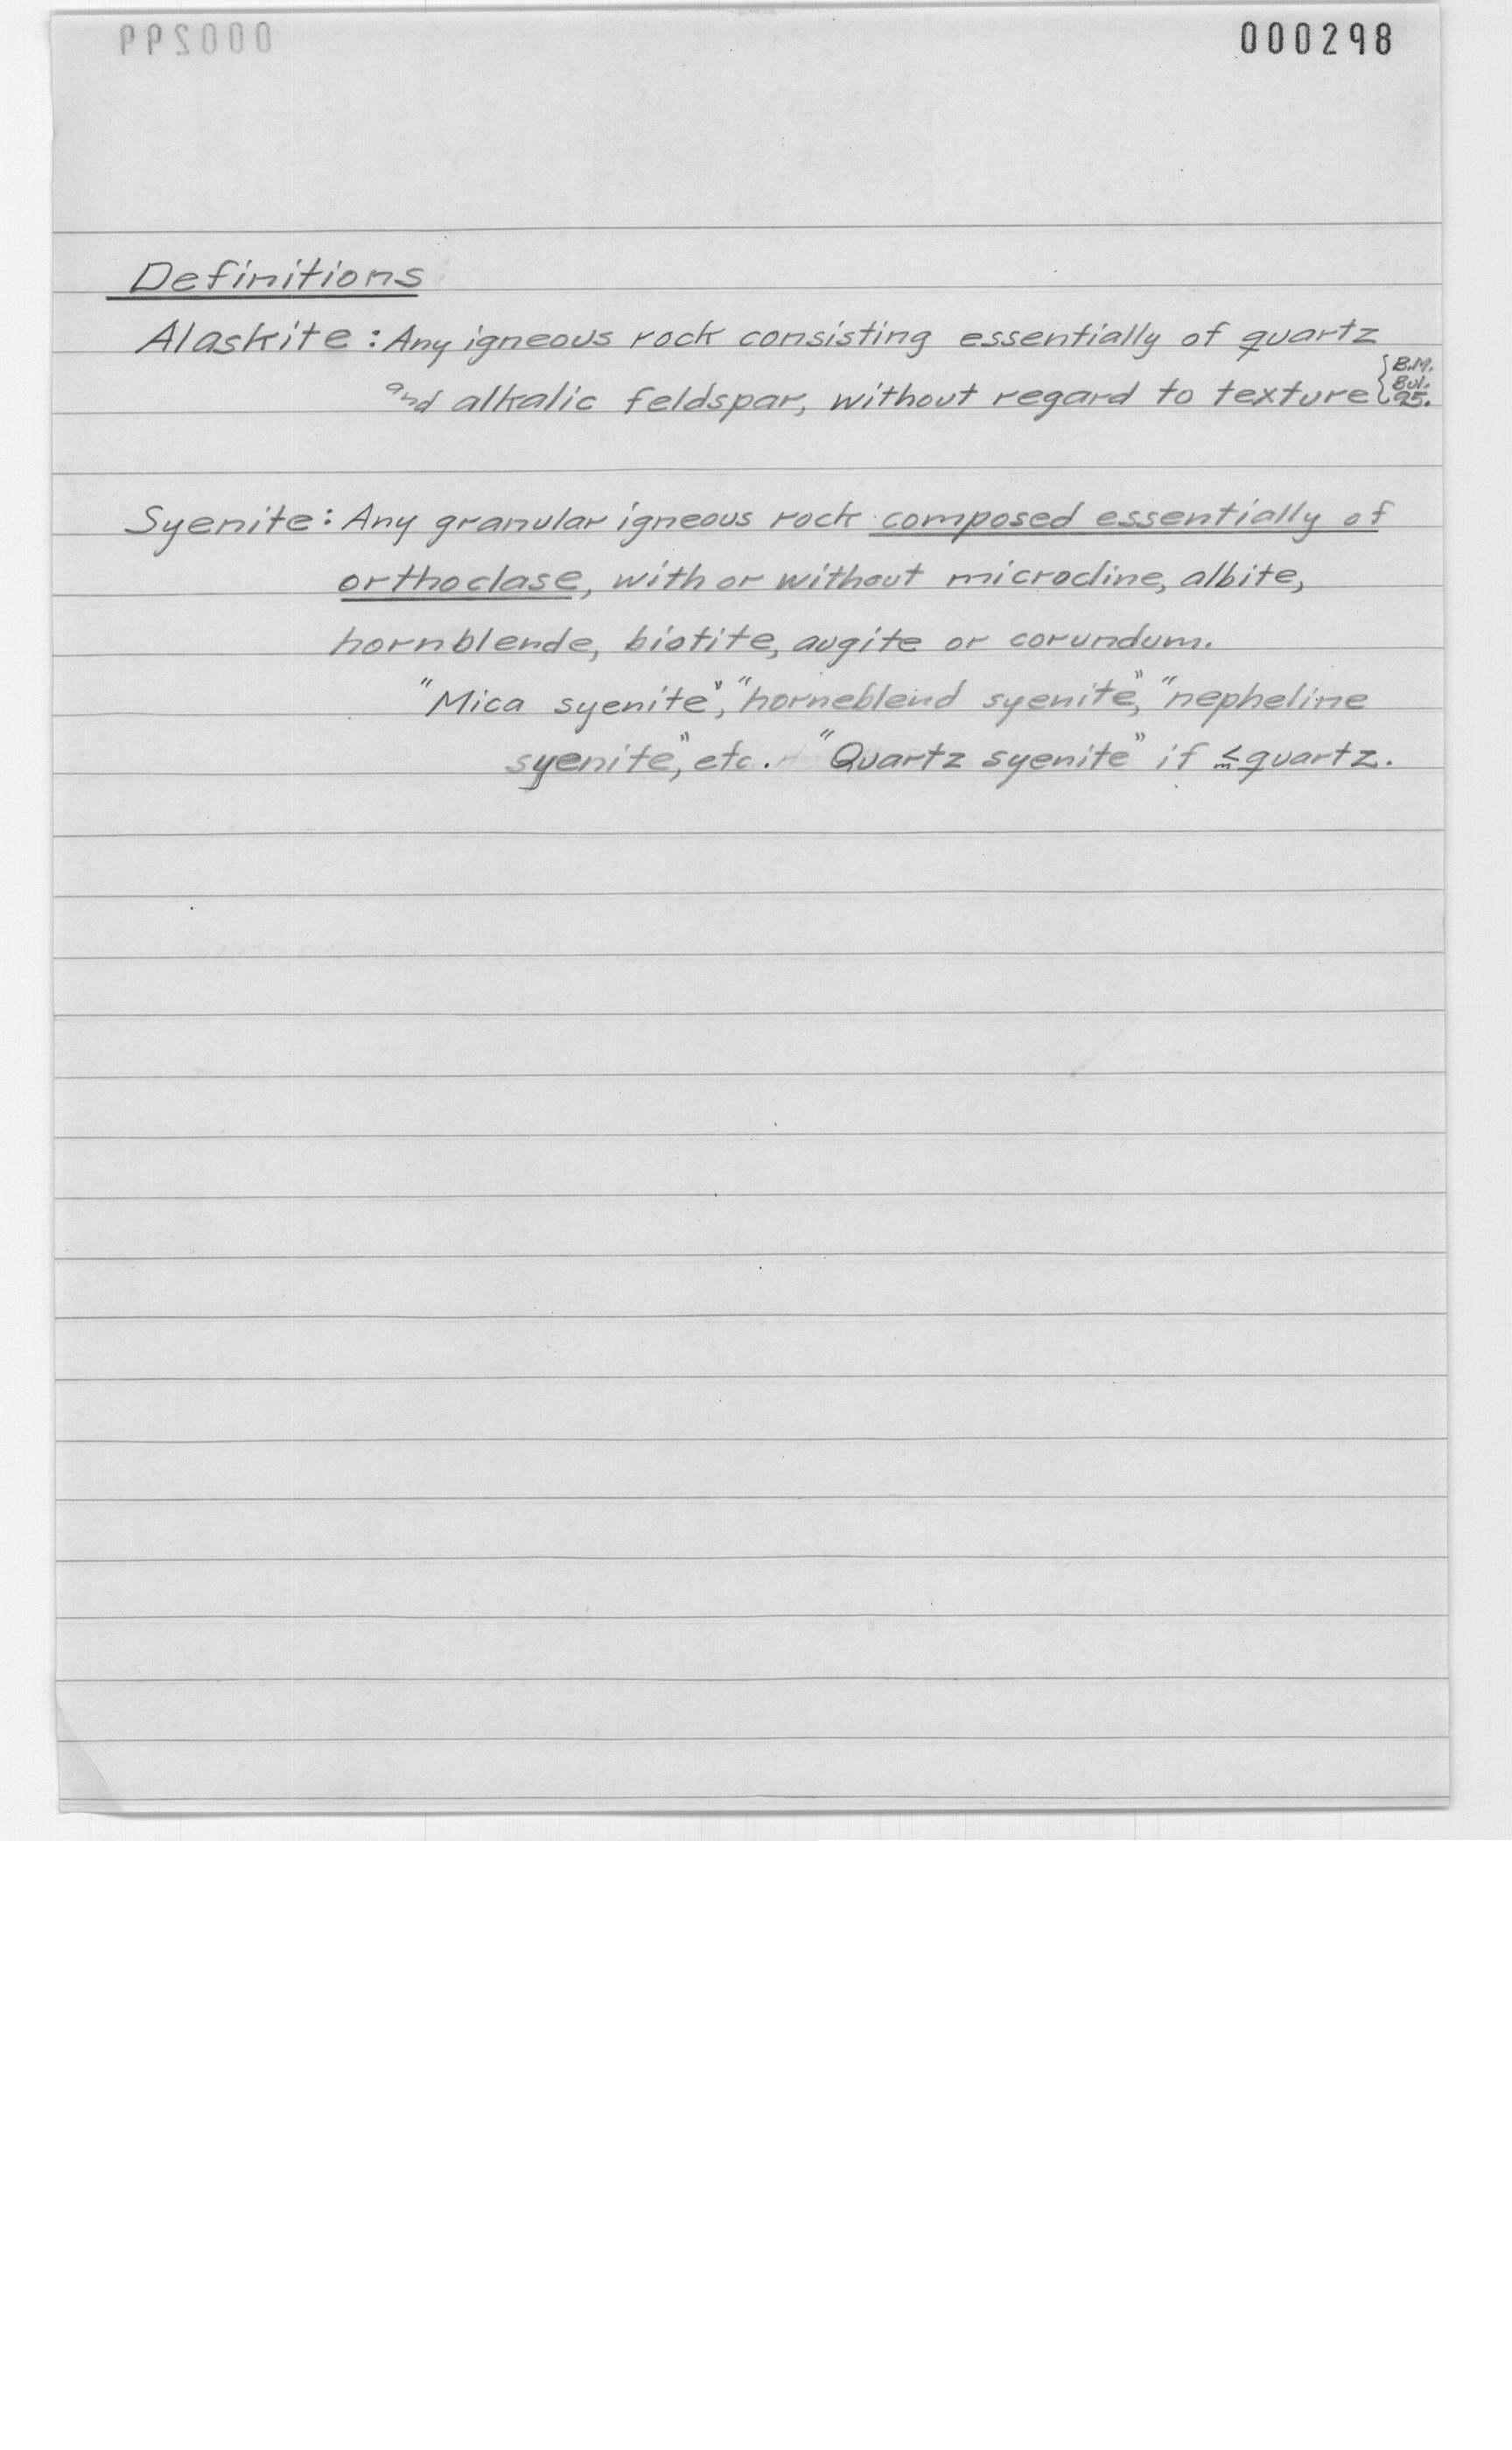 000298
Definitions
Alaskite: Any igneous rock consisting essentially of quartz
and alkalic feldspar, without regard to texture {B.M.
Bul.
95.
Syenite: Any granular igneous rock composed essentially of
orthoclase, with or without microcline, albite,
hornblende, biotite, augite or corundum.
"Mica syenite", "horneblend syenite", "nepheline
syenite", etc. "Quartz syenite" if quartz.